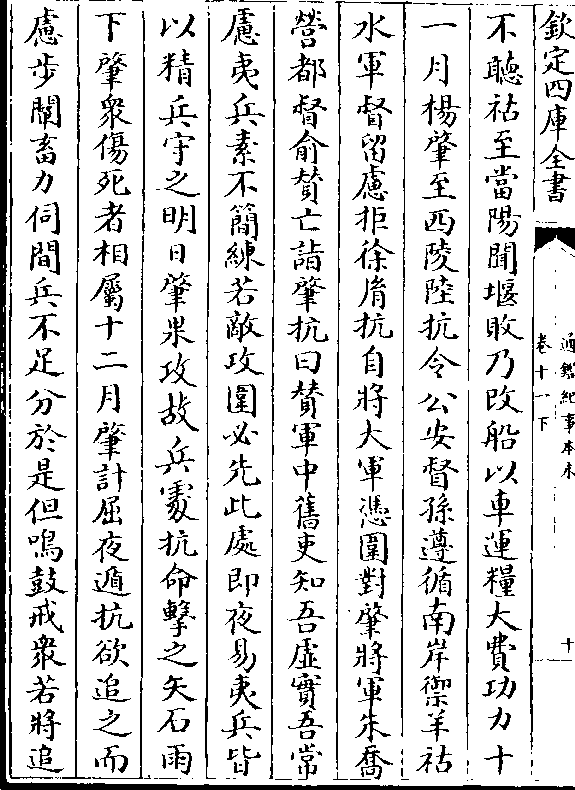 欽定四庫全書
通鑑紀事本末
卷十一下
十
不聽祜至當陽聞堰敗乃改船以車運糧大費功力十
一月楊肇至西陵陸抗令公安督孫遵循南岸禦羊祜
水軍督留慮拒徐胤抗自將大軍憑圍對肇將軍朱喬
營都督俞贊亡詣肇抗曰贊軍中舊吏知吾虛實吾常
慮夷兵素不簡練若敵攻圍必先此處即夜易夷兵皆
以精兵守之明日肇果攻故兵處抗命擊之矢石雨
下肇衆傷死者相屬十二月肇計屈夜遁抗欲追之而
慮步闡畜力伺間兵不足分於是但鳴鼓戒衆若將追